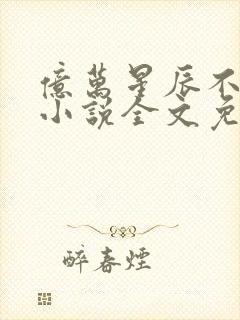 億萬星辰不
小說全文免
醉春煙